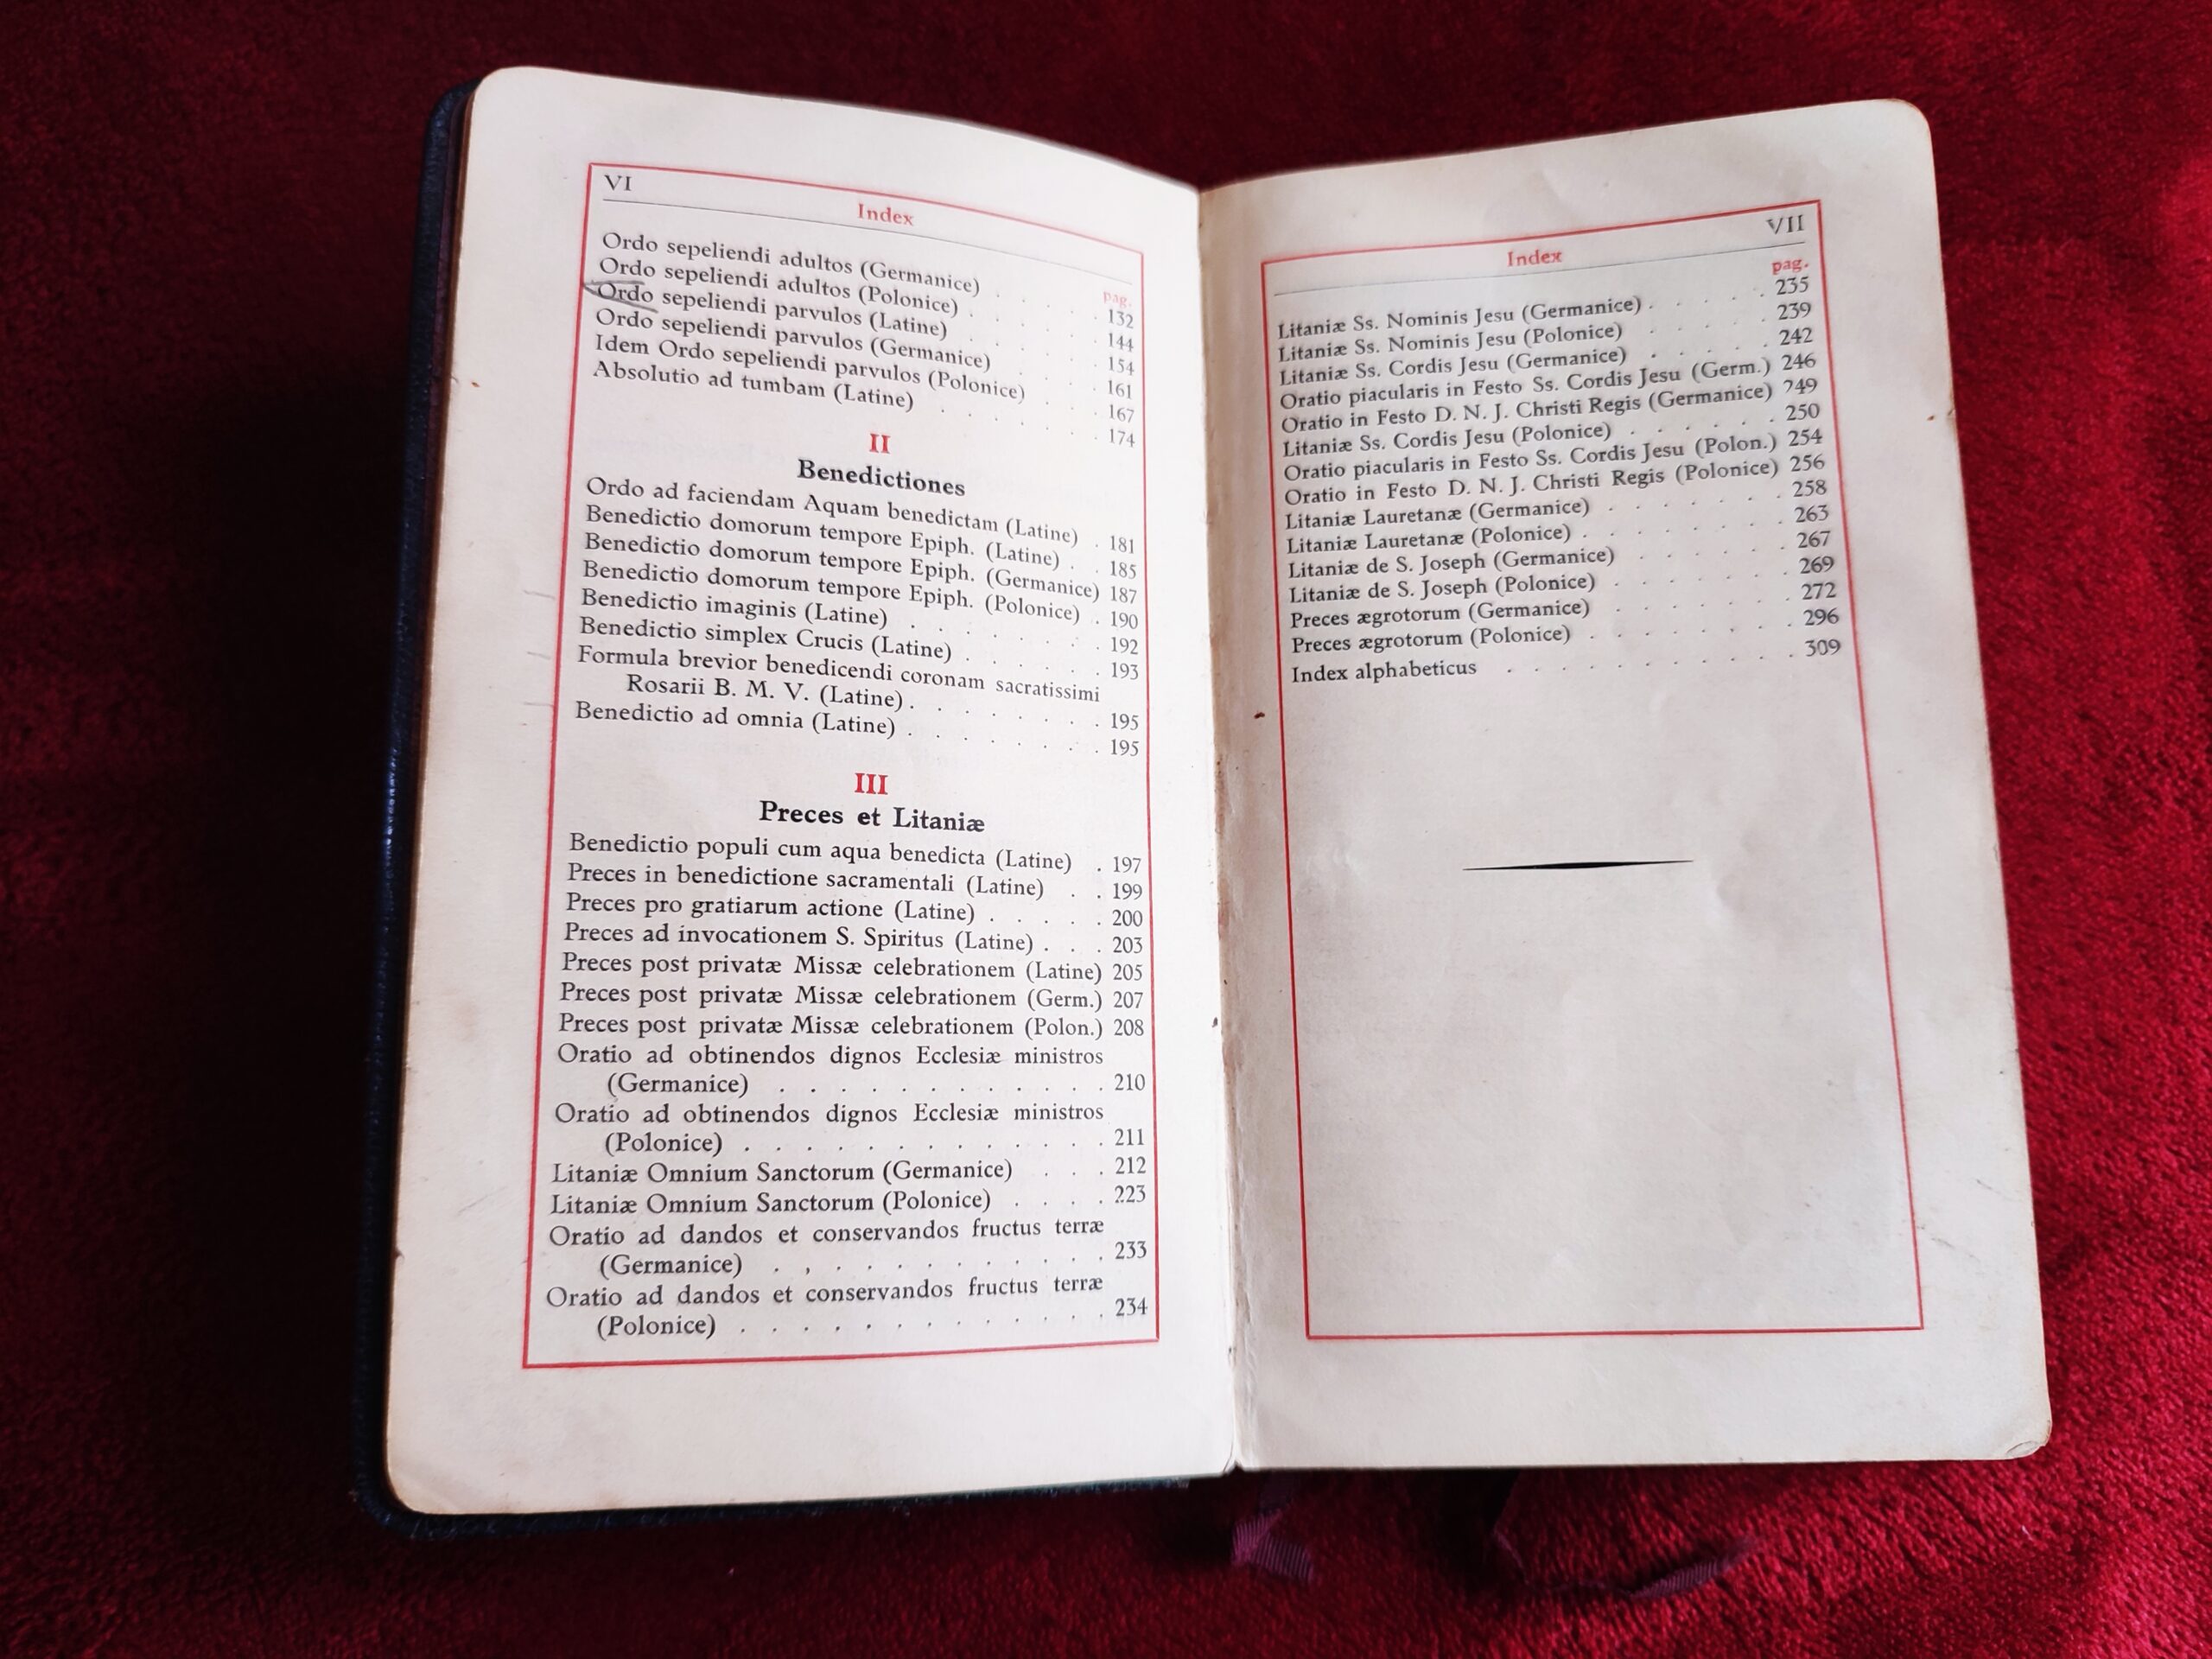 VI
Index
pag.
Ordo sepeliendi adultos (Germanice) . . . . 132
Ordo sepeliendi adultos (Polonice) . . . . . 144
Ordo sepeliendi parvulos (Latine) . . . . . 154
Ordo sepeliendi parvulos (Germanice) . . . . 161
Idem Ordo sepeliendi parvulos (Polonice) . . . 167
Absolutio ad tumbam (Latine) . . . . . . 174
II
Benedictiones
Ordo ad faciendam Aquam benedictam (Latine) . 181
Benedictio domorum tempore Epiph. (Latine) . . 185
Benedictio domorum tempore Epiph. (Germanice) 187
Benedictio domorum tempore Epiph. (Polonice) . 190
Benedictio imaginis (Latine) . . . . . . . 192
Benedictio simplex Crucis (Latine) . . . . . . 193
Formula brevior benedicendi coronam sacratissimi
Rosarii B. M. V. (Latine) . . . . . . . 195
Benedictio ad omnia (Latine) . . . . . . . 195
III
Preces et Litaniæ
Benedictio populi cum aqua benedicta (Latine) . 197
Preces in benedictione sacramentali (Latine) . . 199
Preces pro gratiarum actione (Latine) . . . . . 200
Preces ad invocationem S. Spiritus (Latine) . . . 203
Preces post privatæ Missæ celebrationem (Latine) 205
Preces post privatæ Missæ celebrationem (Germ.) 207
Preces post privatæ Missæ celebrationem (Polon.) 208
Oratio ad obtinendos dignos Ecclesiæ ministros
(Germanice) . . . . . . . . . . . . 210
Oratio ad obtinendos dignos Ecclesiæ ministros
(Polonice) . . . . . . . . . . . . . 211
Litaniæ Omnium Sanctorum (Germanice) . . . 212
Litaniæ Omnium Sanctorum (Polonice) . . . . 223
Oratio ad dandos et conservandos fructus terræ
(Germanice) . , . . . . . . . . . . 233
Oratio ad dandos et conservandos fructus terræ
(Polonice) . . . . . . . . . . . . . 234
VII
Index
pag.
Litaniæ Ss. Nominis Jesu (Germanice) . . . . . 235
Litaniæ Ss. Nominis Jesu (Polonice) . . . . . 239
Litaniæ Ss. Cordis Jesu (Germanice) . . . . . 242
Oratio piacularis in Festo Ss. Cordis Jesu (Germ.) 246
Oratio in Festo D. N. J. Christi Regis (Germanice) 249
Litaniæ Ss. Cordis Jesu (Polonice) . . . . . . 250
Oratio piacularis in Festo Ss. Cordis Jesu (Polon.) 254
Oratio in Festo D. N. J. Christi Regis (Polonice) 256
Litaniæ Lauretanæ (Germanice) . . . . . . . 258
Litaniæ Lauretanæ (Polonice) . . . . . . . . 263
Litaniæ de S. Joseph (Germanice) . . . . . . 267
Litaniæ de S. Joseph (Polonice) . . . . . . . 269
Preces ægrotorum (Germanice) . . . . . . . 272
Preces ægrotorum (Polonice) . . . . . . . . 296
Index alphabeticus . . . . . . . . . . . 309